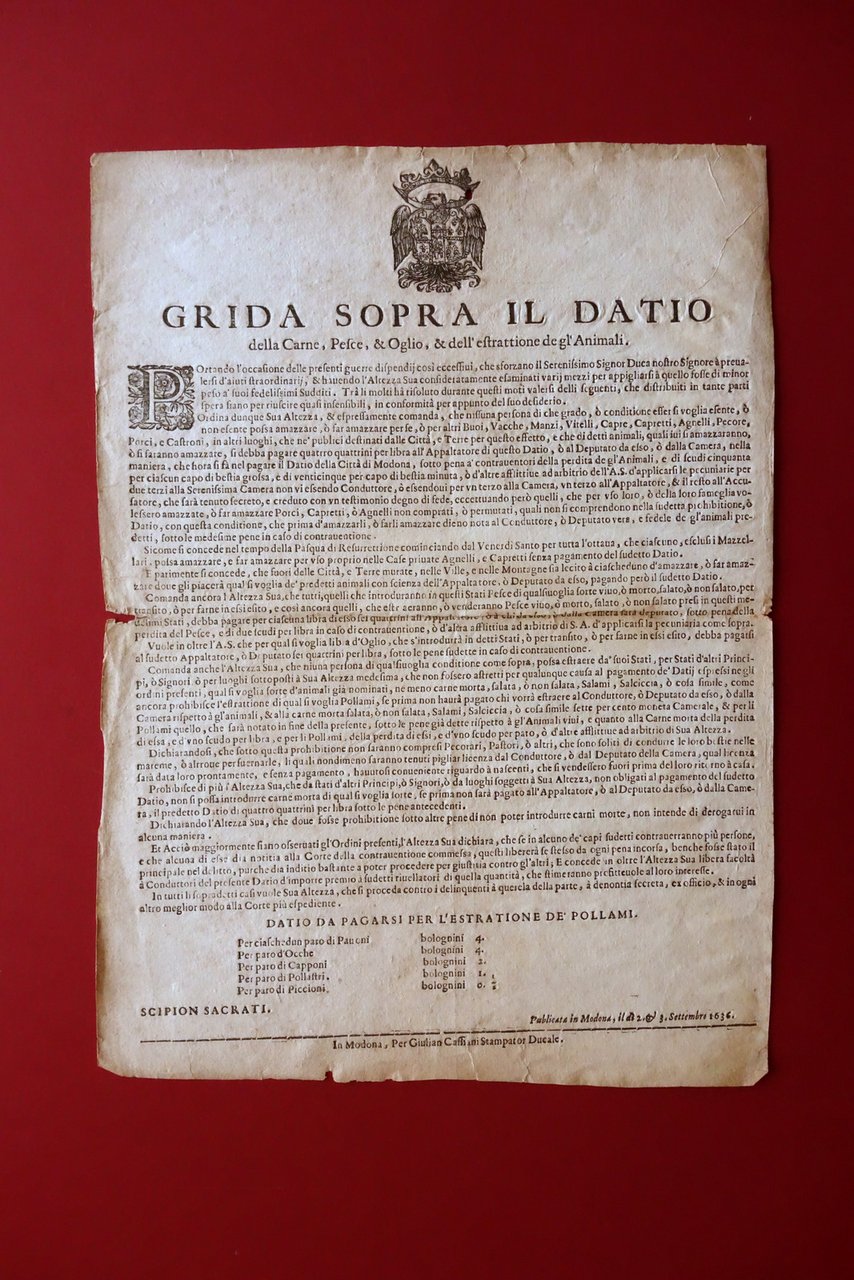 GRIDA SOPRA IL DATIO
della Carne, Pesce, & Oglio, & dell'estrattione de gl'Animali.
POrtando l'occasione delle presenti guerre dispendij così eccessiui, che sforzano il Serenissimo Signor Duca nostro Signore à preua-
lersi d'aiuti straordinarij, & hauendo l'Altezza Sua consideratamente esaminati varij mezzi per appigliarsi à quello fosse di minor
peso a' suoi fedelissimi Sudditi. Trà li molti hà risoluto durante questi moti valersi delli seguenti, che distribuiti in tante parti
spera siano per riuscire quasi insensibili, in conformità per appunto del suo desiderio.
Ordina dunque Sua Altezza, & espressamente comanda, che nissuna persona di che grado, ò conditione esser si voglia esente, ò
non esente possa amazzare, ò far amazzare per se, ò per altri Buoi, Vacche, Manzi, Vitelli, Capre, Capretti, Agnelli, Pecore,
Porci, e Castroni, in altri luoghi, che ne' publici destinati dalle Città, e Terre per questo effetto, e che di detti animali, quali iui s'amazzaranno,
ò si faranno amazzare, si debba pagare quattro quattrini per libra all'Appaltatore di questo Datio, ò al Deputato da esso, ò dalla Camera, nella
maniera, che hora si fà nel pagare il Datio della Città di Modona, sotto pena à contrauentori della perdita de gl'Animali, e di scudi cinquanta
per ciascun capo di bestia grossa, e di venticinque per capo di bestia minuta, ò d'altre afflittiue ad arbitrio dell'A.S. d'applicarsi le pecuniarie per
due terzi alla Serenissima Camera non vi essendo Conduttore, ò essendoui per vn terzo alla Camera, vn terzo all'Appaltatore, & il resto all'Accu-
satore, che sarà tenuto secreto, e creduto con vn testimonio degno di fede, eccettuando però quelli, che per vso loro, ò della loro famiglia vo-
lessero amazzare, ò far amazzare Porci, Capretti, ò Agnelli non comprati, ò permutati, quali non si comprendono nella sudetta prohibitione, ò
Datio, con questa conditione, che prima d'amazzarli, ò farli amazzare dieno nota al Conduttore, ò Deputato vera, e fedele de gl'animali pre-
detti, sotto le medesime pene in caso di contrauentione.
Si come si concede nel tempo della Pasqua di Resurrettione cominciando dal Venerdi Santo per tutta l'ottaua, che ciascuno, esclusi i Mazzel-
lari, possa amazzare, e far amazzare per vso proprio nelle Case priuate Agnelli, e Capretti senza pagamento del sudetto Datio.
E parimente si concede, che fuori delle Città, e Terre murate, nelle Ville, e nelle Montagne sia lecito à ciascheduno d'amazzare, ò far amaz-
zare doue gli piacerà qual si voglia de' predetti animali con scienza dell'Appaltatore, ò Deputato da esso, pagando però il sudetto Datio.
Comanda ancora l'Altezza Sua, che tutti, quelli che introduranno in questi Stati Pesce di qualsiuoglia sorte viuo, ò morto, salato, ò non salato, per
transito, ò per farne in essi esito, e così ancora quelli, che estraeranno, ò venderanno Pesce viuo, ò morto, salato, ò non salato presi in questi me-
desimi Stati, debba pagare per ciascuna libra di esso sei quattrini all'Appaltatore, ò à chi da esso, ò dalla Camera sarà deputato, sotto pena della
perdita del Pesce, e di due scudi per libra in caso di contrauentione, ò d'altra afflittiua ad arbitrio di S. A. d'applicarsi la pecuniaria come sopra.
Vuole in oltre l'A.S. che per qual si voglia libra d'Oglio, che s'introdurrà in detti Stati, ò per transito, ò per farne in essi esito, debba pagarsi
al sudetto Appaltatore, ò Deputato sei quattrini per libra, sotto le pene sudette in caso di contrauentione.
Comanda anche l'Altezza Sua, che niuna persona di qualsiuoglia conditione come sopra, possa estraere da' suoi Stati, per Stati d'altri Princi-
pi, ò Signori, ò per luoghi sottoposti à Sua Altezza medesima, che non fossero astretti per qualunque causa al pagamento de' Datij espressi negli
ordini presenti, qual si voglia sorte d'animali già nominati, ne meno carne morta, salata, ò non salata, Salami, Salciccia, ò cosa simile, come
ancora prohibisce l'estrattione di qual si voglia Pollami, se prima non haurà pagato chi vorrà estraere al Conduttore, ò Deputato da esso, ò dalla
Camera rispetto à gl'animali, & alla carne morta salata, ò non salata, Salami, Salciccia, ò cosa simile sette per cento moneta Camerale, & per li
Pollami quello, che sarà notato in fine della presente, sotto le pene già dette rispetto à gl'Animali viui, e quanto alla Carne morta della perdita
di essa, e d'vno scudo per libra, e per li Pollami, della perdita di essi, e d'vno scudo per paro, ò d'altre afflittiue ad arbitrio di Sua Altezza.
Dichiarandosi, che sotto questa prohibitione non saranno compresi Pecorari, Pastori, ò altri, che sono soliti di condurre le loro bestie nelle
mareme, ò altroue per suernarle, li quali nondimeno saranno tenuti pigliar licenza dal Conduttore, ò dal Deputato della Camera, qual licenza
sarà data loro prontamente, e senza pagamento, hauutosi conueniente riguardo à nascenti, che si vendessero fuori prima del loro ritorno à casa.
Prohibisce di più l'Altezza Sua, che da stati d'altri Principi, ò Signori, ò da luoghi soggetti à Sua Altezza, non obligati al pagamento del sudetto
Datio, non si possa introdurre carne morta di qual si voglia sorte, se prima non sarà pagato all'Appaltatore, ò al Deputato da esso, ò dalla Came-
ra, il predetto Datio di quattro quattrini per libra sotto le pene antecedenti.
Dichiarando l'Altezza Sua, che doue fosse prohibitione sotto altre pene di non poter introdurre carni morte, non intende di derogarui in
alcuna maniera.
Et Acciò maggiormente siano osseruati gl'Ordini presenti, l'Altezza Sua dichiara, che se in alcuno de' capi sudetti contrauerranno più persone,
e che alcuna di esse dia notitia alla Corte della contrauentione commessa, questi libererà se stesso da ogni pena incorsa, benche fosse stato il
principale nel delitto, purche dia inditio bastante a poter procedere per giustitia contro gl'altri; E concede in oltre l'Altezza Sua libera facoltà
à Conduttori del presente Datio d'imporre premio à sudetti riuellatori di quella quantità, che stimeranno profitteuole al loro interesse.
In tutti li sopradetti casi vuole Sua Altezza, che si proceda contro i delinquenti à querela della parte, à denontia secreta, ex officio, & in ogni
altro meglior modo alla Corte più espediente.
DATIO DA PAGARSI PER L'ESTRATIONE DE' POLLAMI.
Per ciaschedun paro di Pauoni bolognini 4.
Per paro d'Ocche bolognini 4.
Per paro di Capponi bolognini 2.
Per paro di Pollastri. bolognini 1.
Per paro di Piccioni. bolognini 0. ½
SCIPION SACRATI.
Publicata in Modona, il dì 2. & 3. Settembre 1636.
In Modona, Per Giulian Cassiani Stampator Ducale.